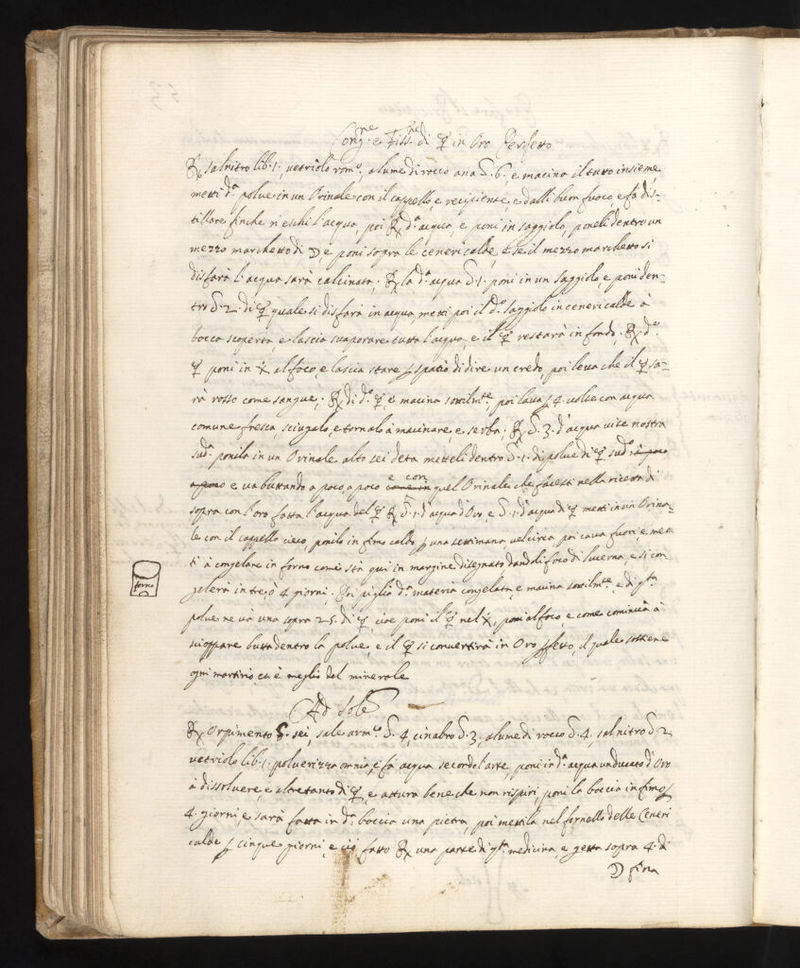 Cong.ne e Fiss.ne di ☿ in Oro Perfetto
℞ Salnitro lib. 1. vetriolo rom.o, alume di rocco ana ℥. 6. e macina il tutto insieme,
metti d.a polue in un Orinale con il cappello, e recipiente, e dalli buon fuoco, e fà dis-
tillare finche n'eschi l'acqua, poi ℞ d.a acqua e poni in saggiolo, poneli dentro un
mezzo marchetto di ☽, e poni sopra le ceneri calde, e se il mezzo marchetto si
disfarà l'acqua sarà calcinata; ℞ la d.a acqua ℥. 1. poni in un saggiolo, e poni den-
tro ℥. 2. di ☿ quale si disfarà in acqua, metti poi il d.o saggiolo in ceneri calde à
bocca scoperta, e lascia suaporare tutta l'acqua, e il ☿ restarà in fondo, ℞ d.o
☿ poni in al foco, e lascia stare ꝑ spatio di dire un credo, poi leva che il ☿ sa-
rà rosso come sangue; ℞ di d.o ☿, e macina sottilm.te, poi laua ꝑ 4. volte con acqua
comune fresca, sciugalo, e tornalo à macinare, e serba; ℞ ℥. 3. d'acqua vite nostra
sud.a ponila in un Orinale alto sei deta metteli dentro ℥. 1. di polue di ☿ sud.o à poco
à poco e va buttando a poco a poco e con quel Orinale che facesti nella ricetta di
sopra con l'oro fatta l'acqua del ☿ ℞ ℥. 1. d'acqua d'Oro, e ℥. 1. d'acqua di ☿ metti in un Orina-
le con il cappello cieco, ponilo in fimo caldo ꝑ una settimana vel circa, poi caua fuori e met-
ti à congelare in forno come stà qui in margine disegnato dandoli foco di lucerna, e si con
forno
gelerà in tre ò 4 giorni. Poi piglia d.a materia congelata, e macina sottilm.te, e di q.ta
polue ne và una sopra 25. di ☿, cioè poni il ☿ nel poni al foco, e come comincia à
scioppare butta dentro la polue e il ☿ si convertirà in Oro ꝑfetto, il quale sostiene
ogni martirio, et è meglio del minerale
Ad Solē
℞ Orpimento ℥. sei, sale arm.o ℥. 4, cinabro ℥. 3, alume di rocco ℥. 4, salnitro ℥ 2
vetriolo lib. 1. polverizza omnia, e fà acqua secondo l'arte, poni in d.a acqua un ducato d'Oro
à dissoluere, e altrettanto di ☿ e attura bene che non rispiri, poni la boccia in fimo ꝑ
4. giorni e sarà fatta in d.a boccia una pietra, poi mettila nel fornello delle Ceneri
calde ꝑ cinque giorni, e ciò fatto ℞ una parte di q.ta medicina, e getta sopra 4. di
☽ fina